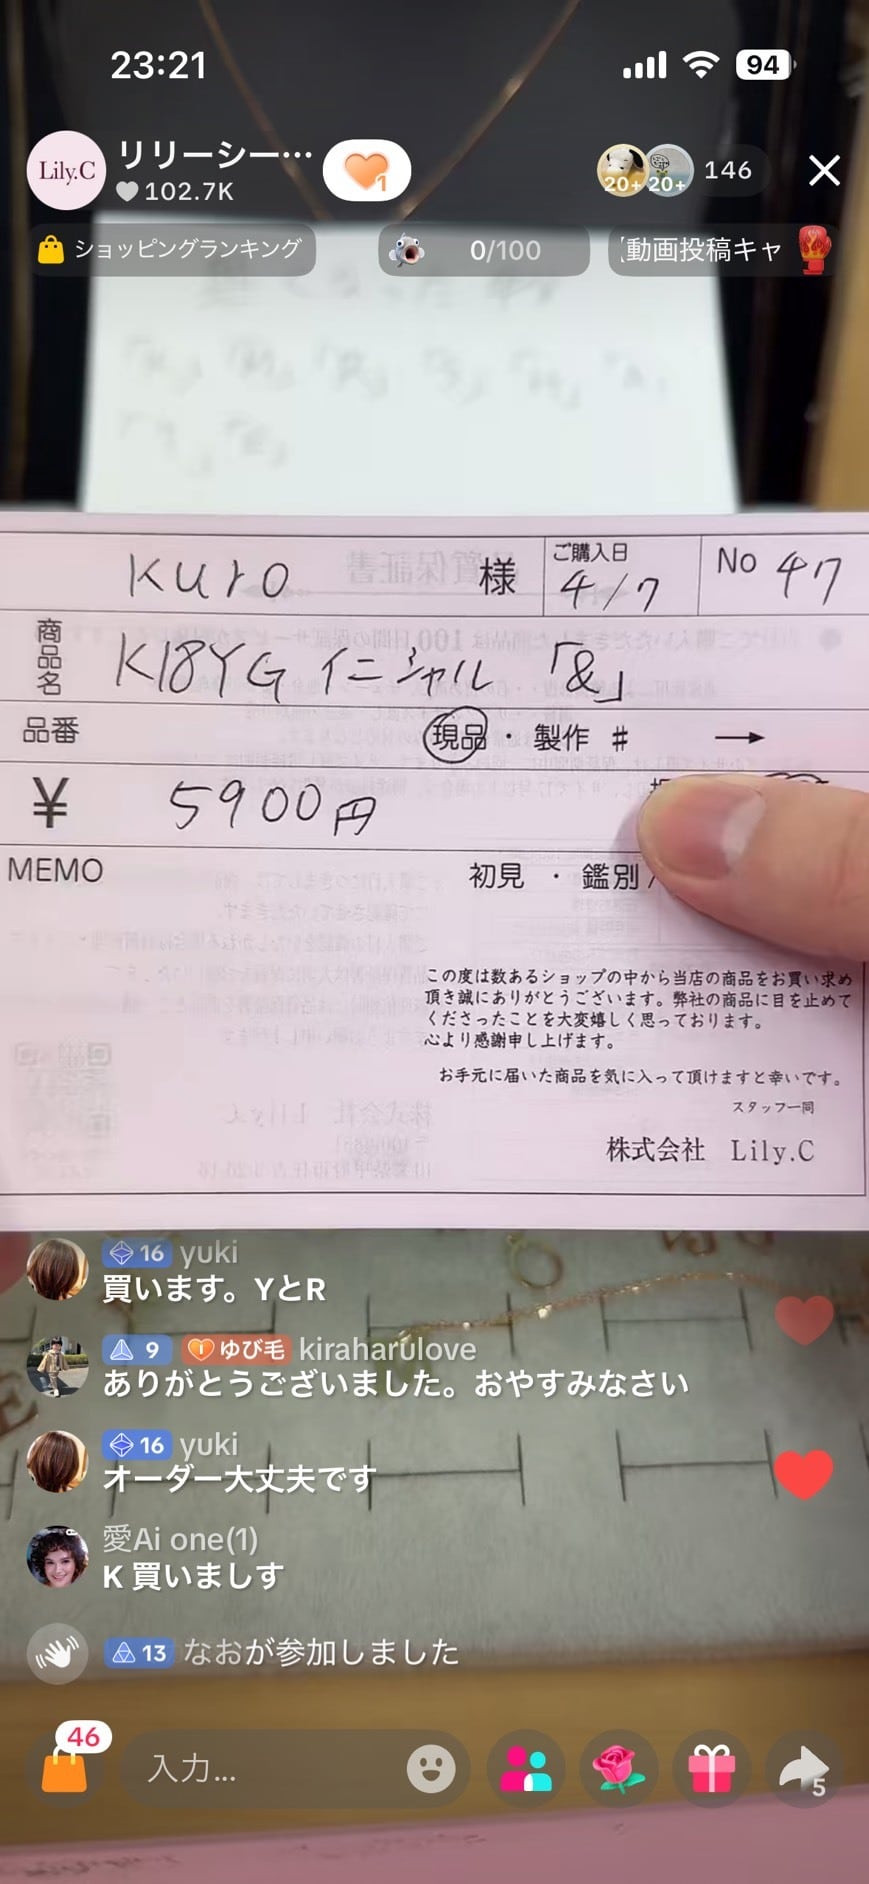 23:21
94
Lily.C
リリーシー…
102.7K
1
20+ 20+
146
ショッピングランキング
0/100
動画投稿キャ
Kuro 様
ご購入日
4/7
No 47
商品名
K18YG イニシャル 「&」
品番
現品・製作 # →
¥ 5900円
MEMO
初見 ・ 鑑別
この度は数あるショップの中から当店の商品をお買い求め
頂き誠にありがとうございます。弊社の商品に目を止めて
くださったことを大変嬉しく思っております。
心より感謝申し上げます。
お手元に届いた商品を気に入って頂けますと幸いです。
スタッフ一同
株式会社 Lily.C
16 yuki
買います。YとR
9 ゆび毛 kiraharulove
ありがとうございました。おやすみなさい
16 yuki
オーダー大丈夫です
愛Ai one(1)
K 買いましす
13 なおが参加しました
46
入力...
5